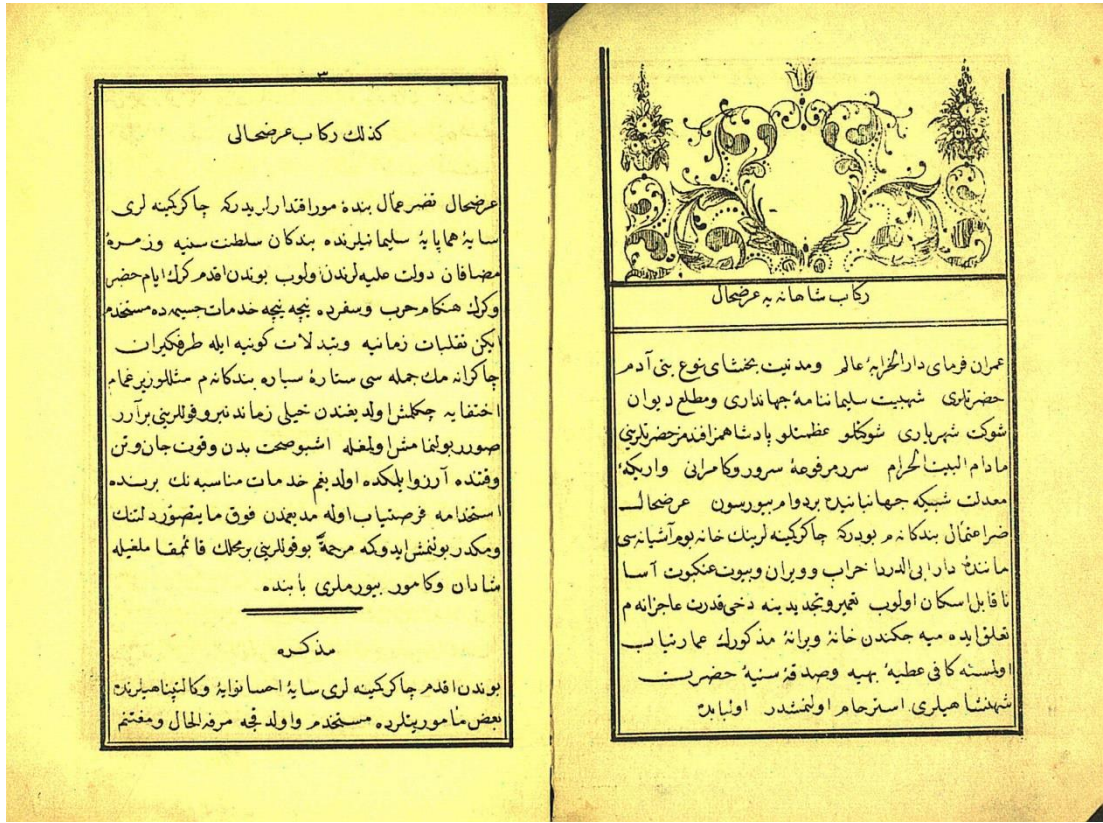 ركاب شاهانه يه عرضحال
عمران فرماى دار الخرابهٔ عالم ومدنيت بخشاى نوع بنى آدم
حضرتلرى شهبيت سليماننامهٔ جهاندارى ومطلع ديوان
شوكت شهريارى شوكتلو عظمتلو پادشاهمز افدمز حضرتلرينى
مادام البيت الحرام سرر مرفوعهٔ سرور وكامرانى واريكهٔ
معدلت شبيكهٔ جهانبانيده بردوام بيورسون عرضحال
ضراعتمال بندكانه م بودركه چاكر كينه لرينك خانهٔ بوم آشيانه سى
مانندهٔ دار ابى الدردا خراب وويران وبيوت عنكبوت آسا
نا قابل اسكان اولوب تعمير وتجديدينه دخى قدرت عاجزانه م
تعلق ايده ميه جكندن خانهٔ ويرانهٔ مذكورك عمارتياب
اولمسنه كافى عطيهٔ بهيه وصدقهٔ سنيهٔ حضرت
شهنشاهيلرى استرحام اولنمشدر اولبابده
٣
كذلك ركاب عرضحالى
عرضحال بندهٔ مور اقتدارلريدركه چاكر كينه لرى
سايهٔ همايايهٔ سليمانيلرنده بندكان سلطنت سنيه وزمرهٔ
مضافان دولت عليه لرندن اولوب بوندن اقدم كرك ايام حضر
وكرك هنكام حرب وسفرده نيچه نيچه خدمات جسيمه ده مستخدم
ايكن تقلبات زمانيه وتبدلات كونيه ايله طرفكيران
چاكرانه مك جمله سى ستارهٔ سياره بندكانه م مثللو زير غمام
اختفايه چكلمش اولديغندن خيلى زماندنبرو قوللرينى برآرر
صورر بولنمامش اولمغله اشبو صحت بدن وقوت جان وتن
وقتنده آرزو ايلكده اولديغم خدمات مناسبه نك برينده
استخدامه فرصتياب اوله مديغمدن فوق ما يتصور دلتنك
ومكدر بولنمش ايدوكه مرحمةً بو قوللرينى بر محلك قائممقاملغيله
شادان وكامور بيورملرى بابنده
مذكره
بوندن اقدم چاكر كينه لرى سايهٔ احسانوايهٔ وكالتپناهيلرنده
بعض مأموريتلرده مستخدم واولدقجه مرفه الحال ومغتنم